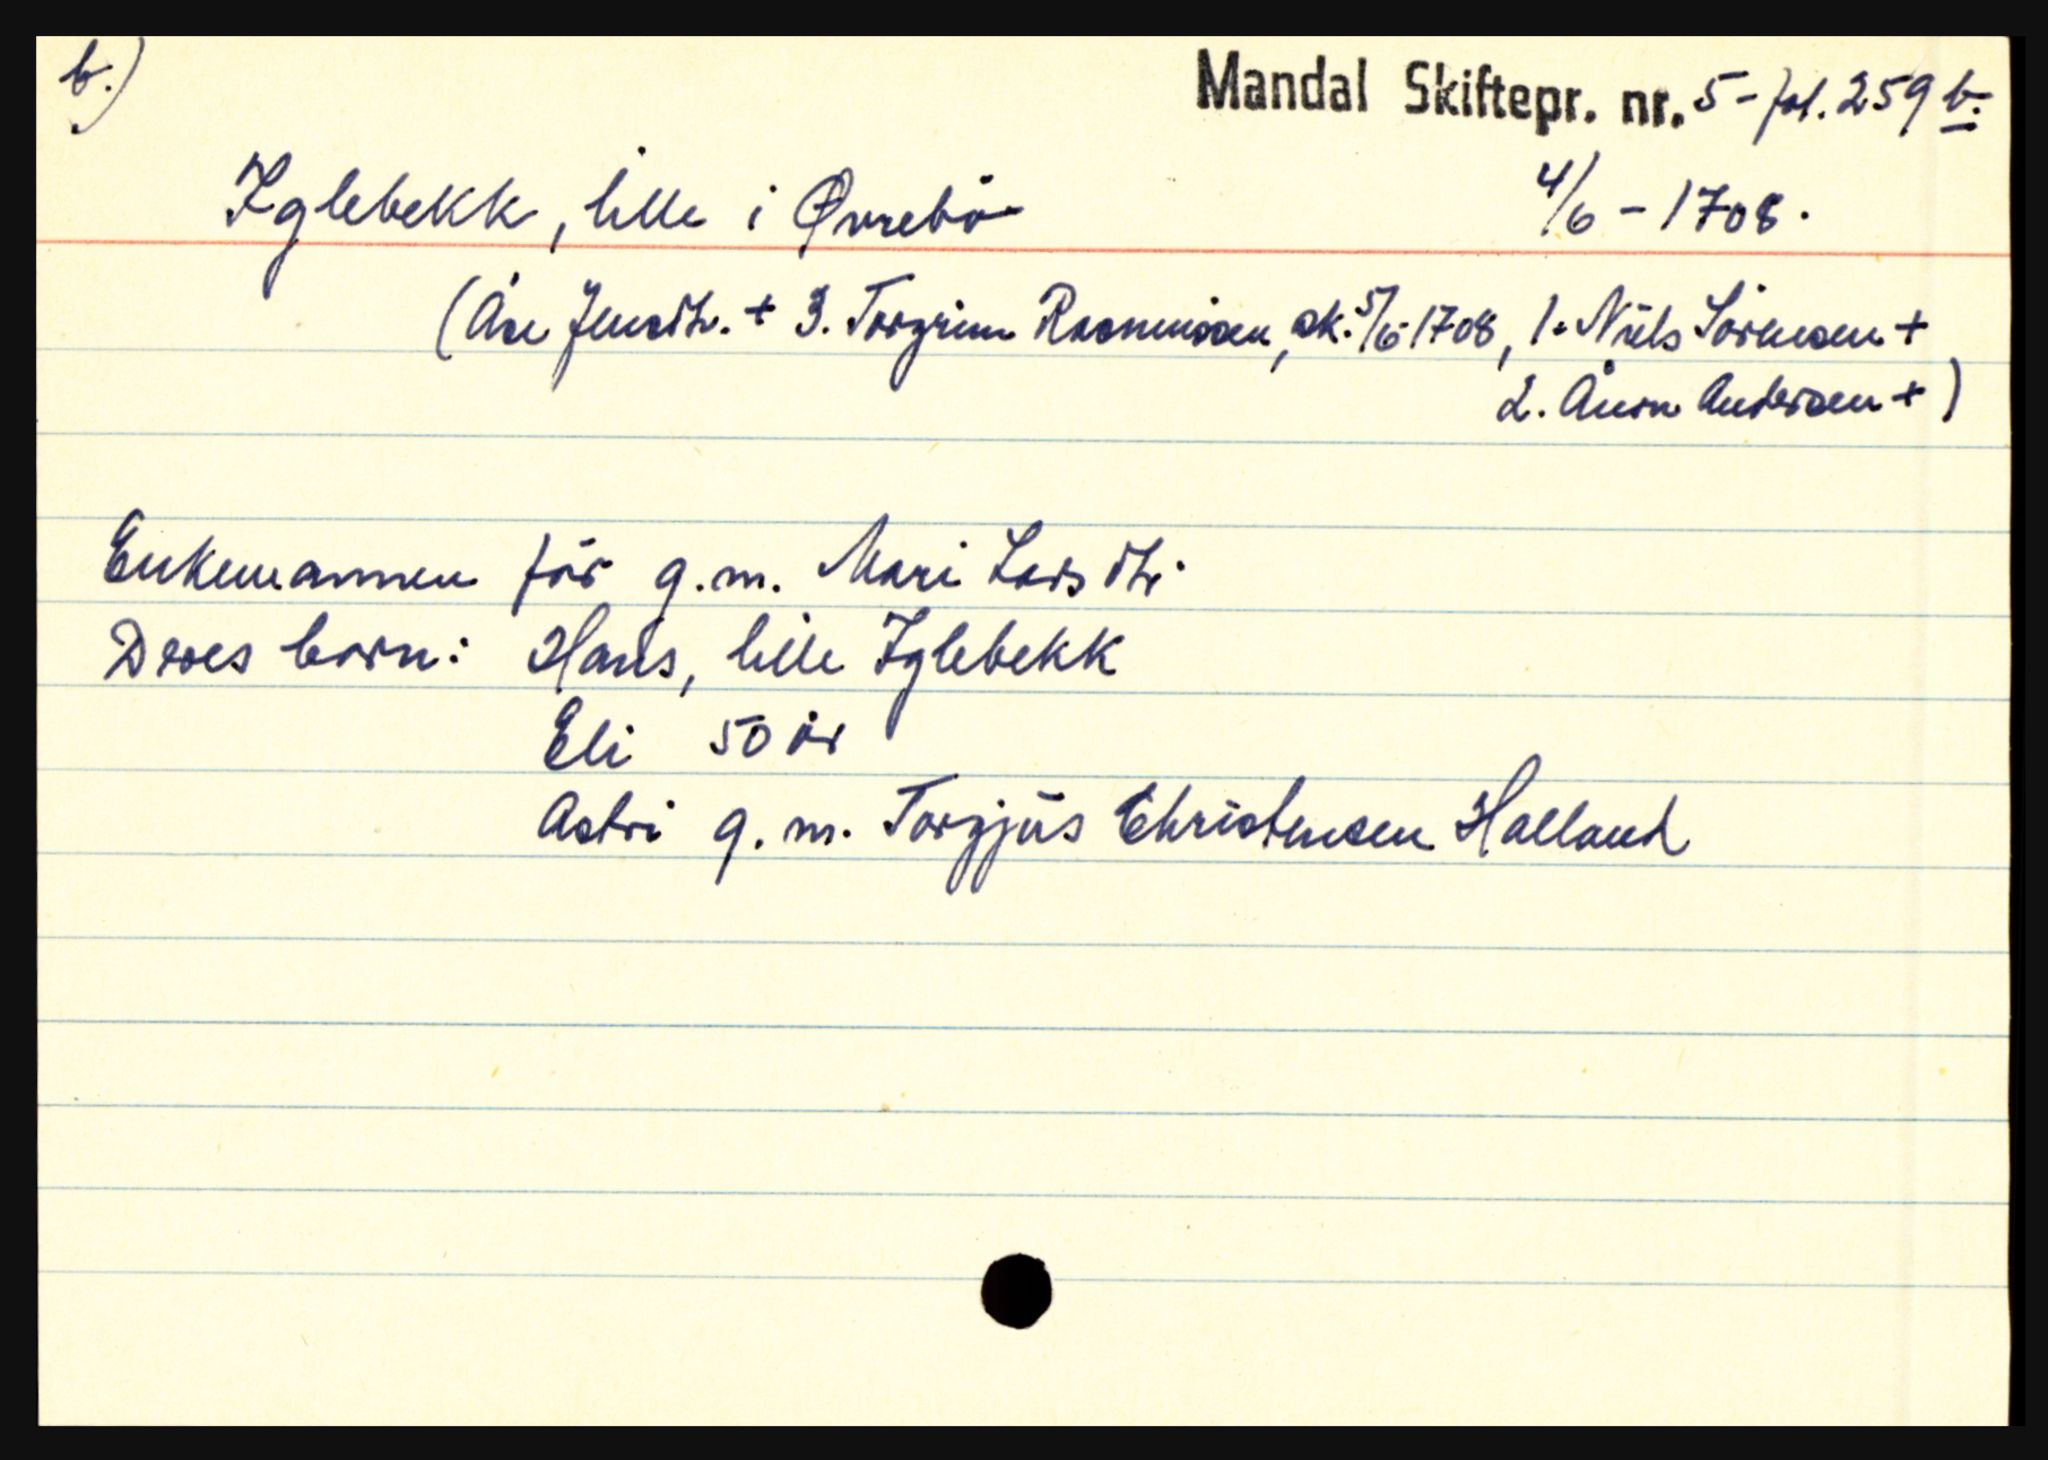 b.)
Mandal Skiftepr. nr. 5 - fol. 259 b.
Iglebekk, lille i Øvrebö 4/6 - 1708.
(Åse Jensdtr. + 3. Torgrim Rasmussen, sk. 5/6 1708, 1. Niels Sörensen +
2. Ånon Andersen +)
Enkemannen för g.m. Mari Larsdtr.
Deres born: Hans, lille Iglebekk
Eli 50 år
Astri g.m. Torgjus Christensen Halland